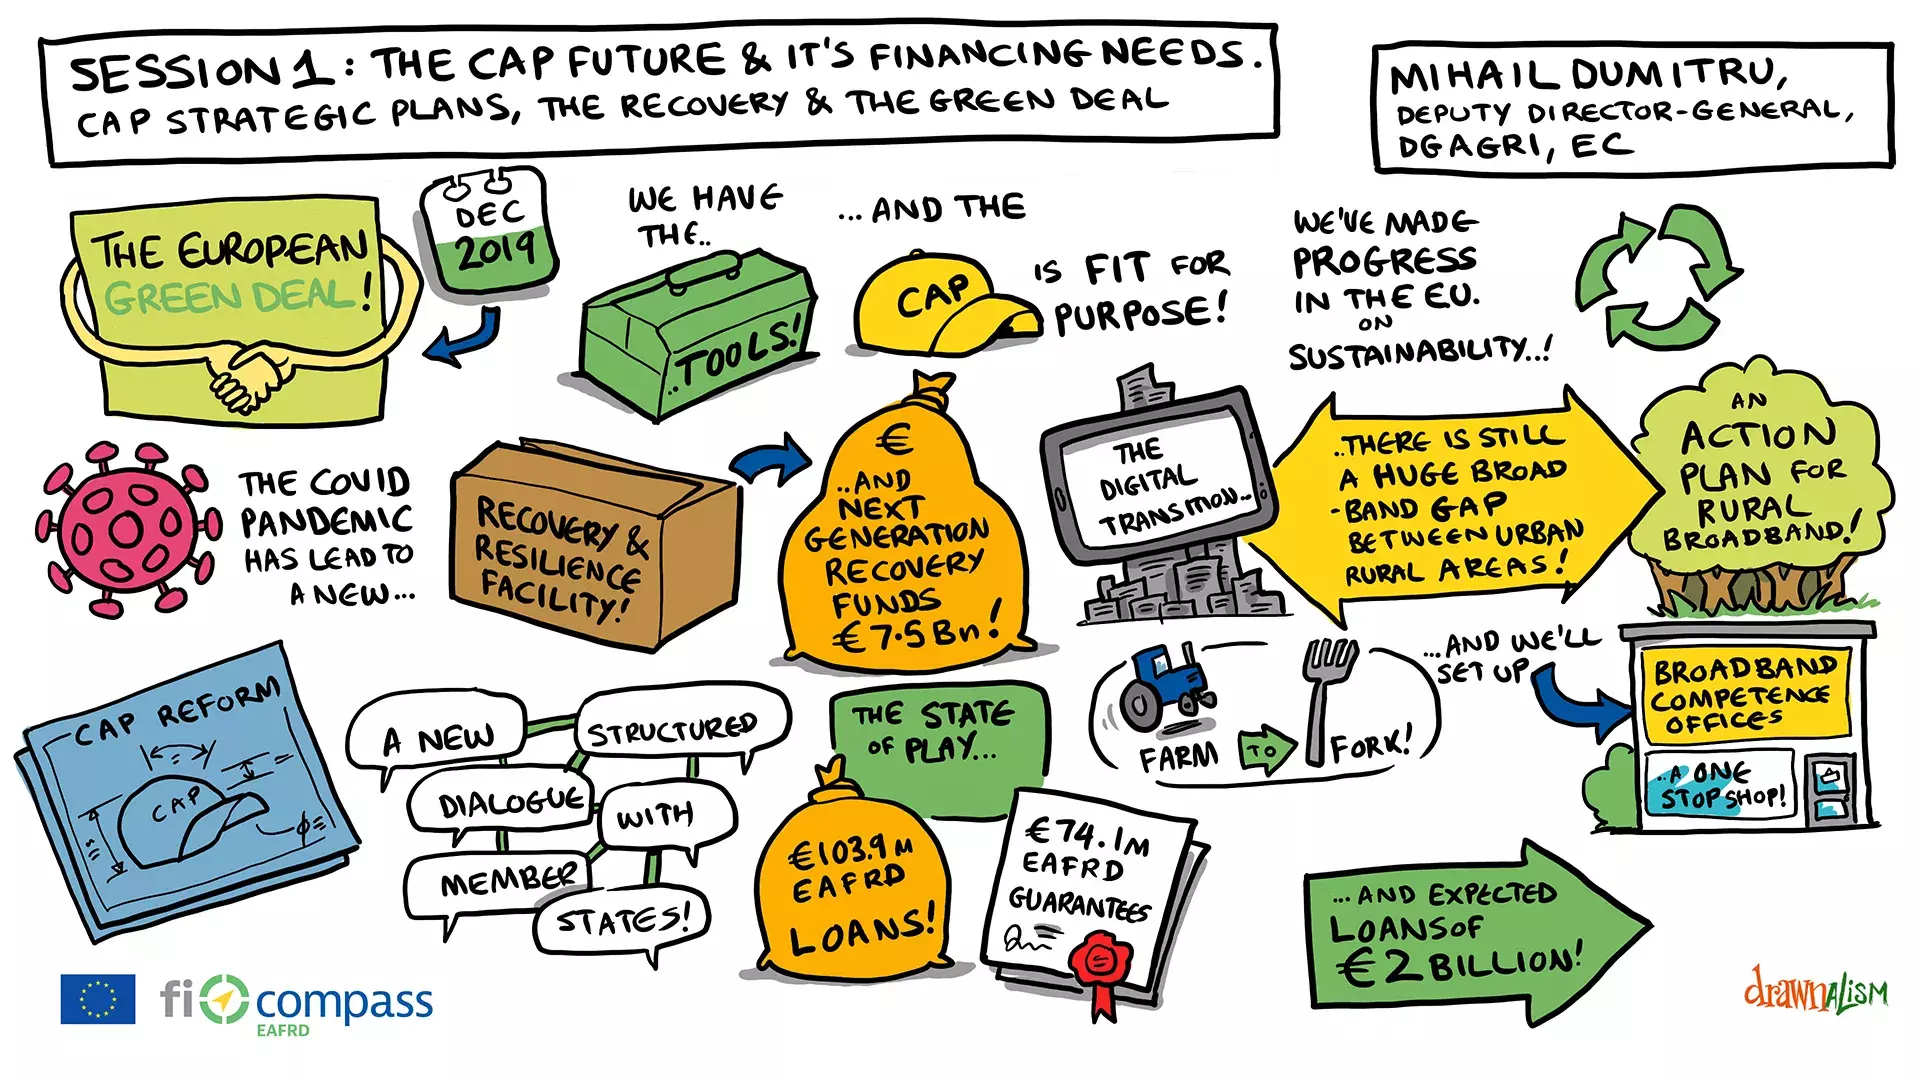 SESSION 1: THE CAP FUTURE & IT'S FINANCING NEEDS.
CAP STRATEGIC PLANS, THE RECOVERY & THE GREEN DEAL
MIHAIL DUMITRU,
DEPUTY DIRECTOR-GENERAL,
DGAGRI, EC
THE EUROPEAN
GREEN DEAL!
DEC
2019
WE HAVE
THE..
..TOOLS!
...AND THE
CAP
IS FIT FOR
PURPOSE!
WE'VE MADE
PROGRESS
IN THE EU.
ON
SUSTAINABILITY..!
THE COVID
PANDEMIC
HAS LEAD TO
A NEW...
RECOVERY &
RESILIENCE
FACILITY!
€
..AND
NEXT
GENERATION
RECOVERY
FUNDS
€7.5Bn!
THE
DIGITAL
TRANSITION..
..THERE IS STILL
A HUGE BROAD
-BAND GAP
BETWEEN URBAN
RURAL AREAS!
AN
ACTION
PLAN FOR
RURAL
BROADBAND!
CAP REFORM
CAP
A NEW
STRUCTURED
DIALOGUE
WITH
MEMBER
STATES!
THE STATE
OF PLAY...
€103.9M
EAFRD
LOANS!
€74.1M
EAFRD
GUARANTEES
FARM
TO
FORK!
...AND WE'LL
SET UP
BROADBAND
COMPETENCE
OFFICES
..A ONE
STOP SHOP!
...AND EXPECTED
LOANS OF
€2 BILLION!
fi compass
EAFRD
drawnALISM